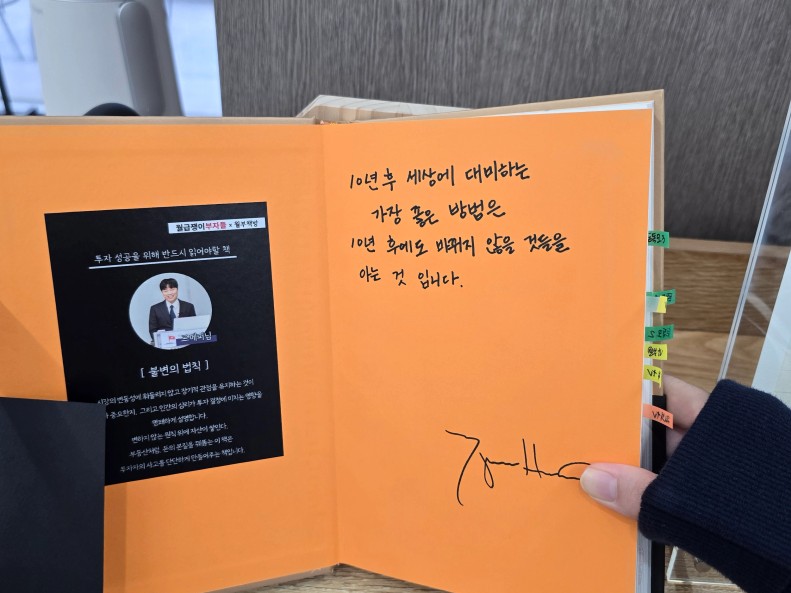 월급쟁이부자들 × 월부책방
투자 성공을 위해 반드시 읽어야할 책
[ 불변의 법칙 ]
시장의 변동성에 휘둘리지 않고 장기적 관점을 유지하는 것이
중요한지, 그리고 인간의 심리가 투자 결정에 미치는 영향을
명쾌하게 설명합니다.
변하지 않는 원칙 위에 자산이 쌓인다.
부동산처럼, 돈의 본질을 꿰뚫는 이 책은
투자자의 사고를 단단하게 만들어주는 책입니다.
10년 후 세상에 대비하는
가장 좋은 방법은
10년 후에도 바뀌지 않을 것들을
아는 것 입니다.